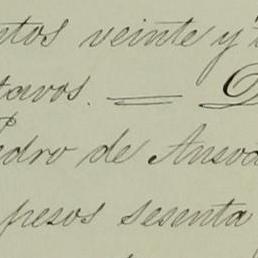 ntos veinte y
tavos. —
Pedro de Ansoa
pesos sesenta